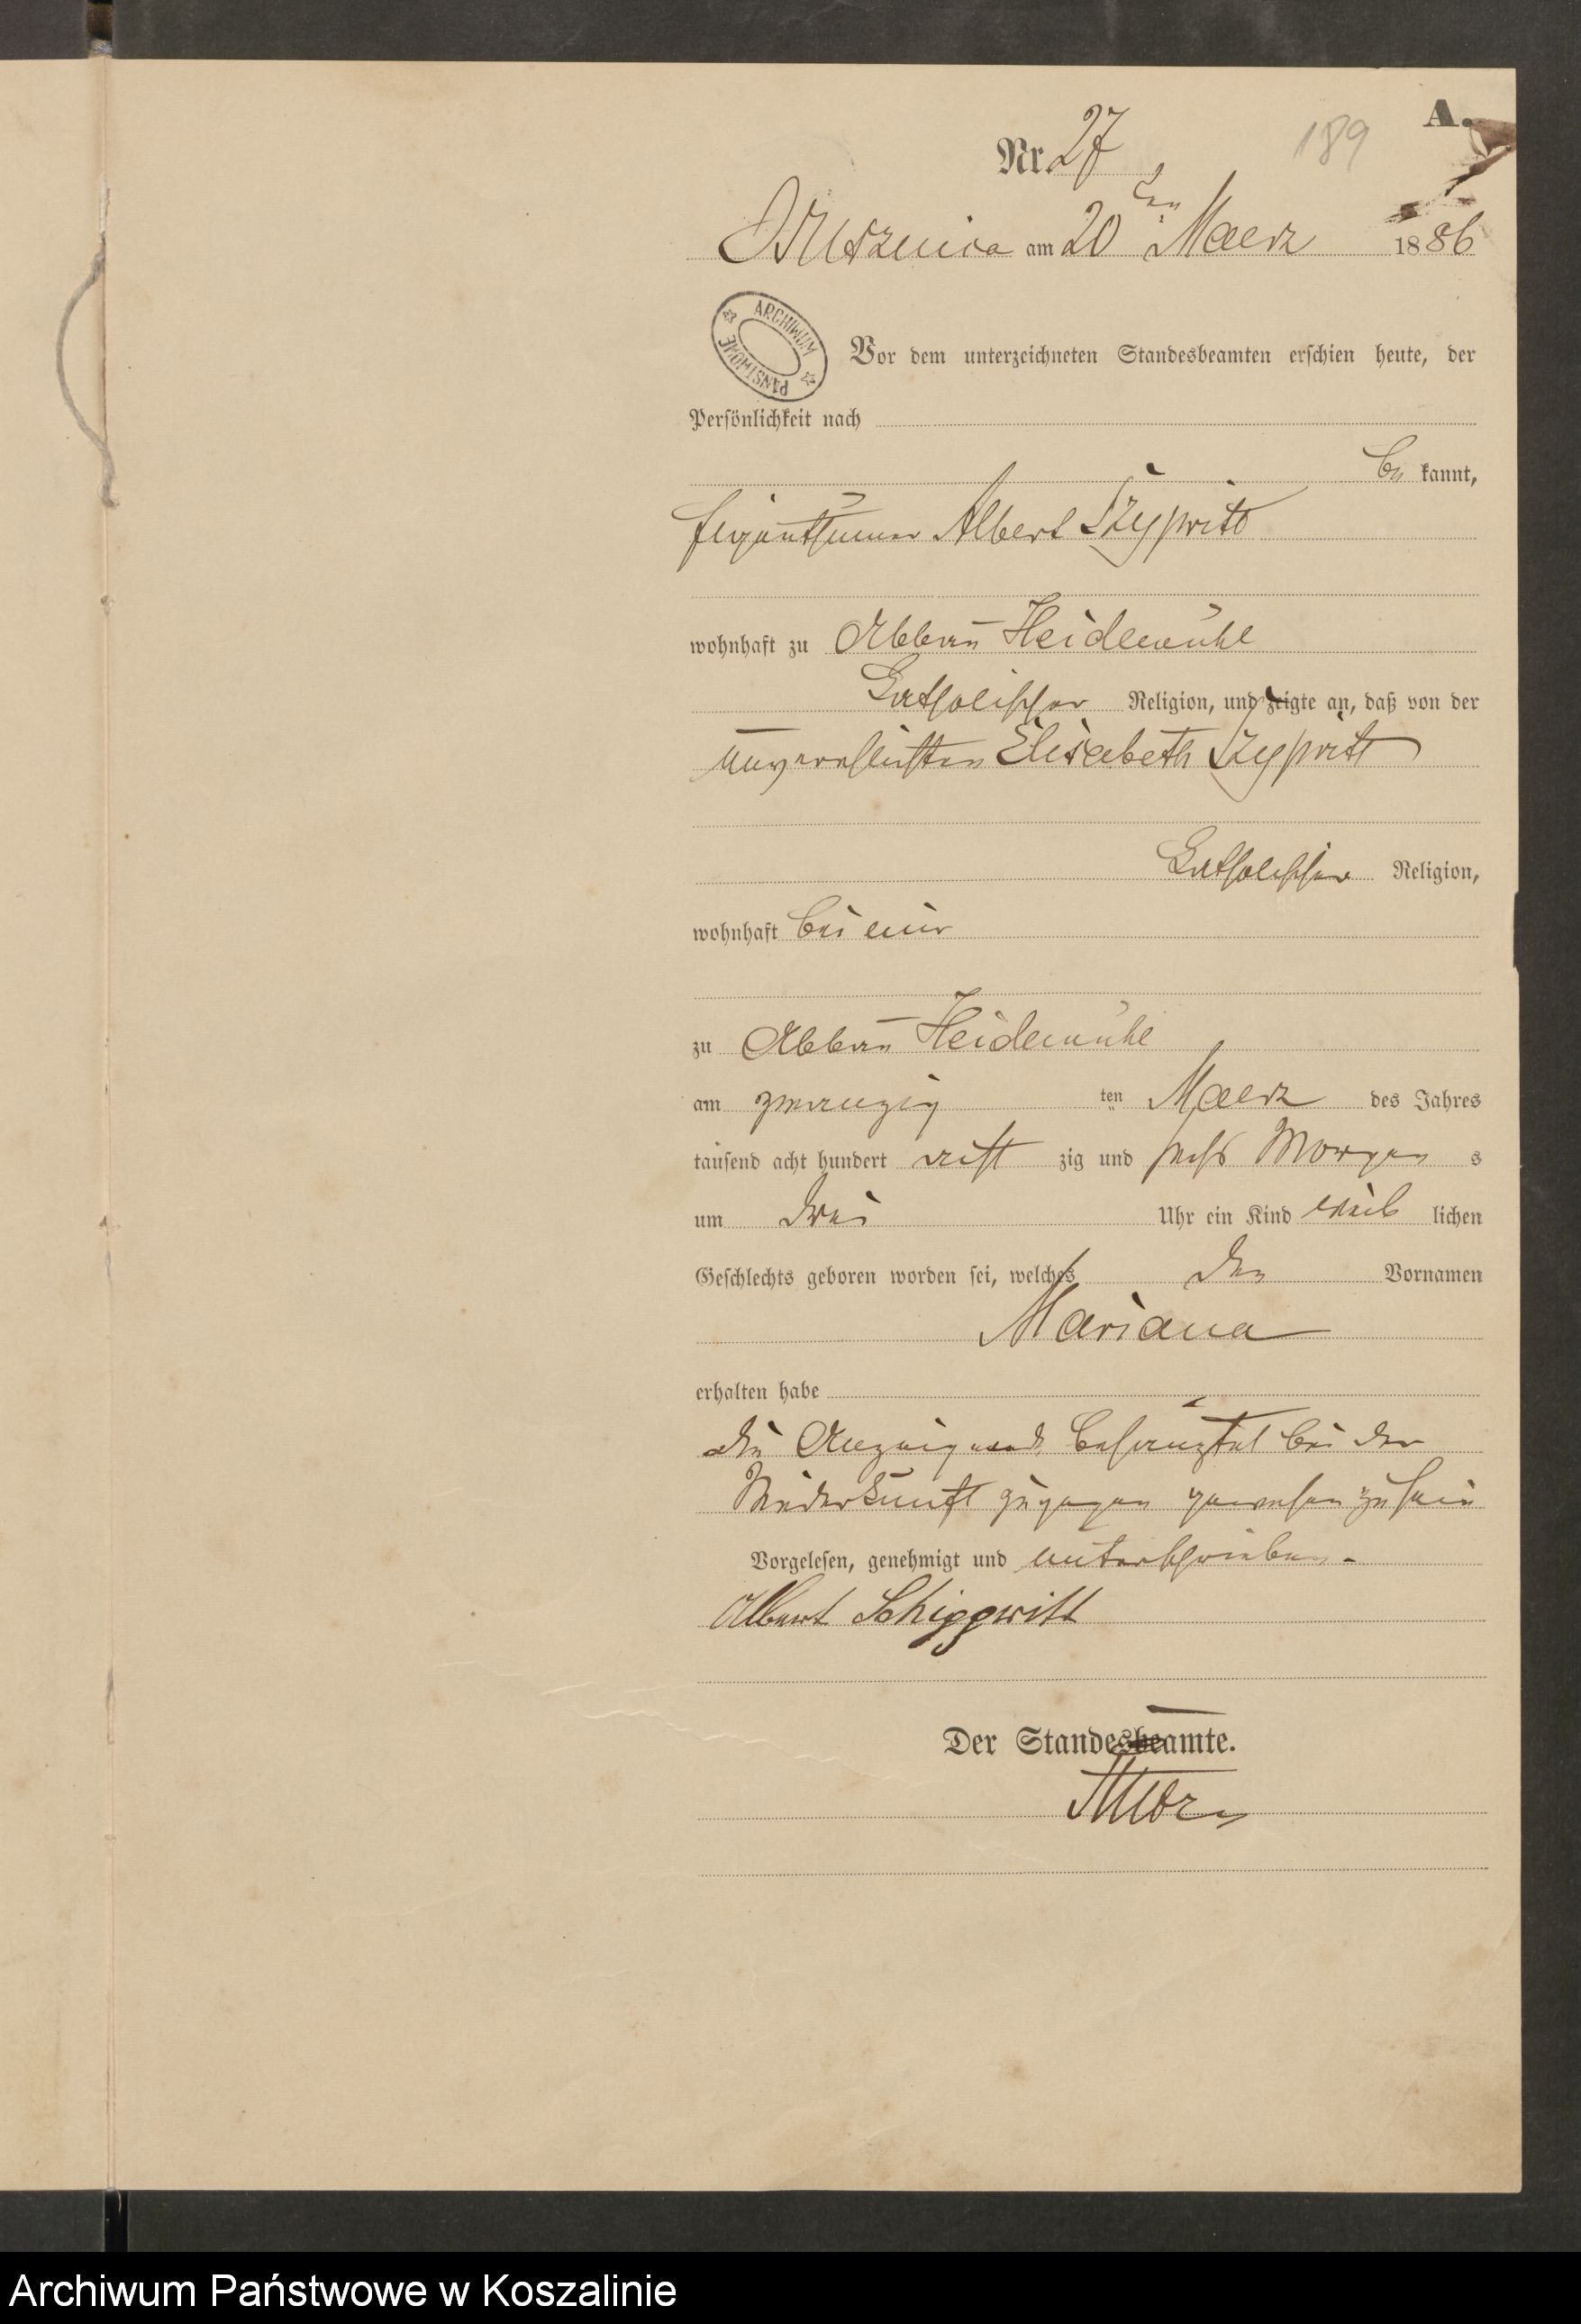 A.
189
Nr. 27
am 20ten Maerz 1886
ARCHIWUM PAŃSTWOWE
Vor dem unterzeichneten Standesbeamten erschien heute, der
Persönlichkeit nach
be kannt,
Eigenthümer Albert Szypritt
wohnhaft zu Abbau Heidemühl
katholischer Religion, und zeigte an, daß von der
unverehlichten Elisabeth Szypritt
katholischer Religion,
wohnhaft bei mir
zu Abbau Heidemühl
am zwanzig ten Maerz des Jahres
tausend acht hundert acht zig und sechs Morgen s
um drei Uhr ein Kind weib lichen
Geschlechts geboren worden sei, welches den Vornamen
Mariana
erhalten habe
die bei der
Niederkunft zugegen gewesen zu sein
Vorgelesen, genehmigt und unterschrieben.
Albert Schippritt
Der Standesbeamte.
Archiwum Państwowe w Koszalinie